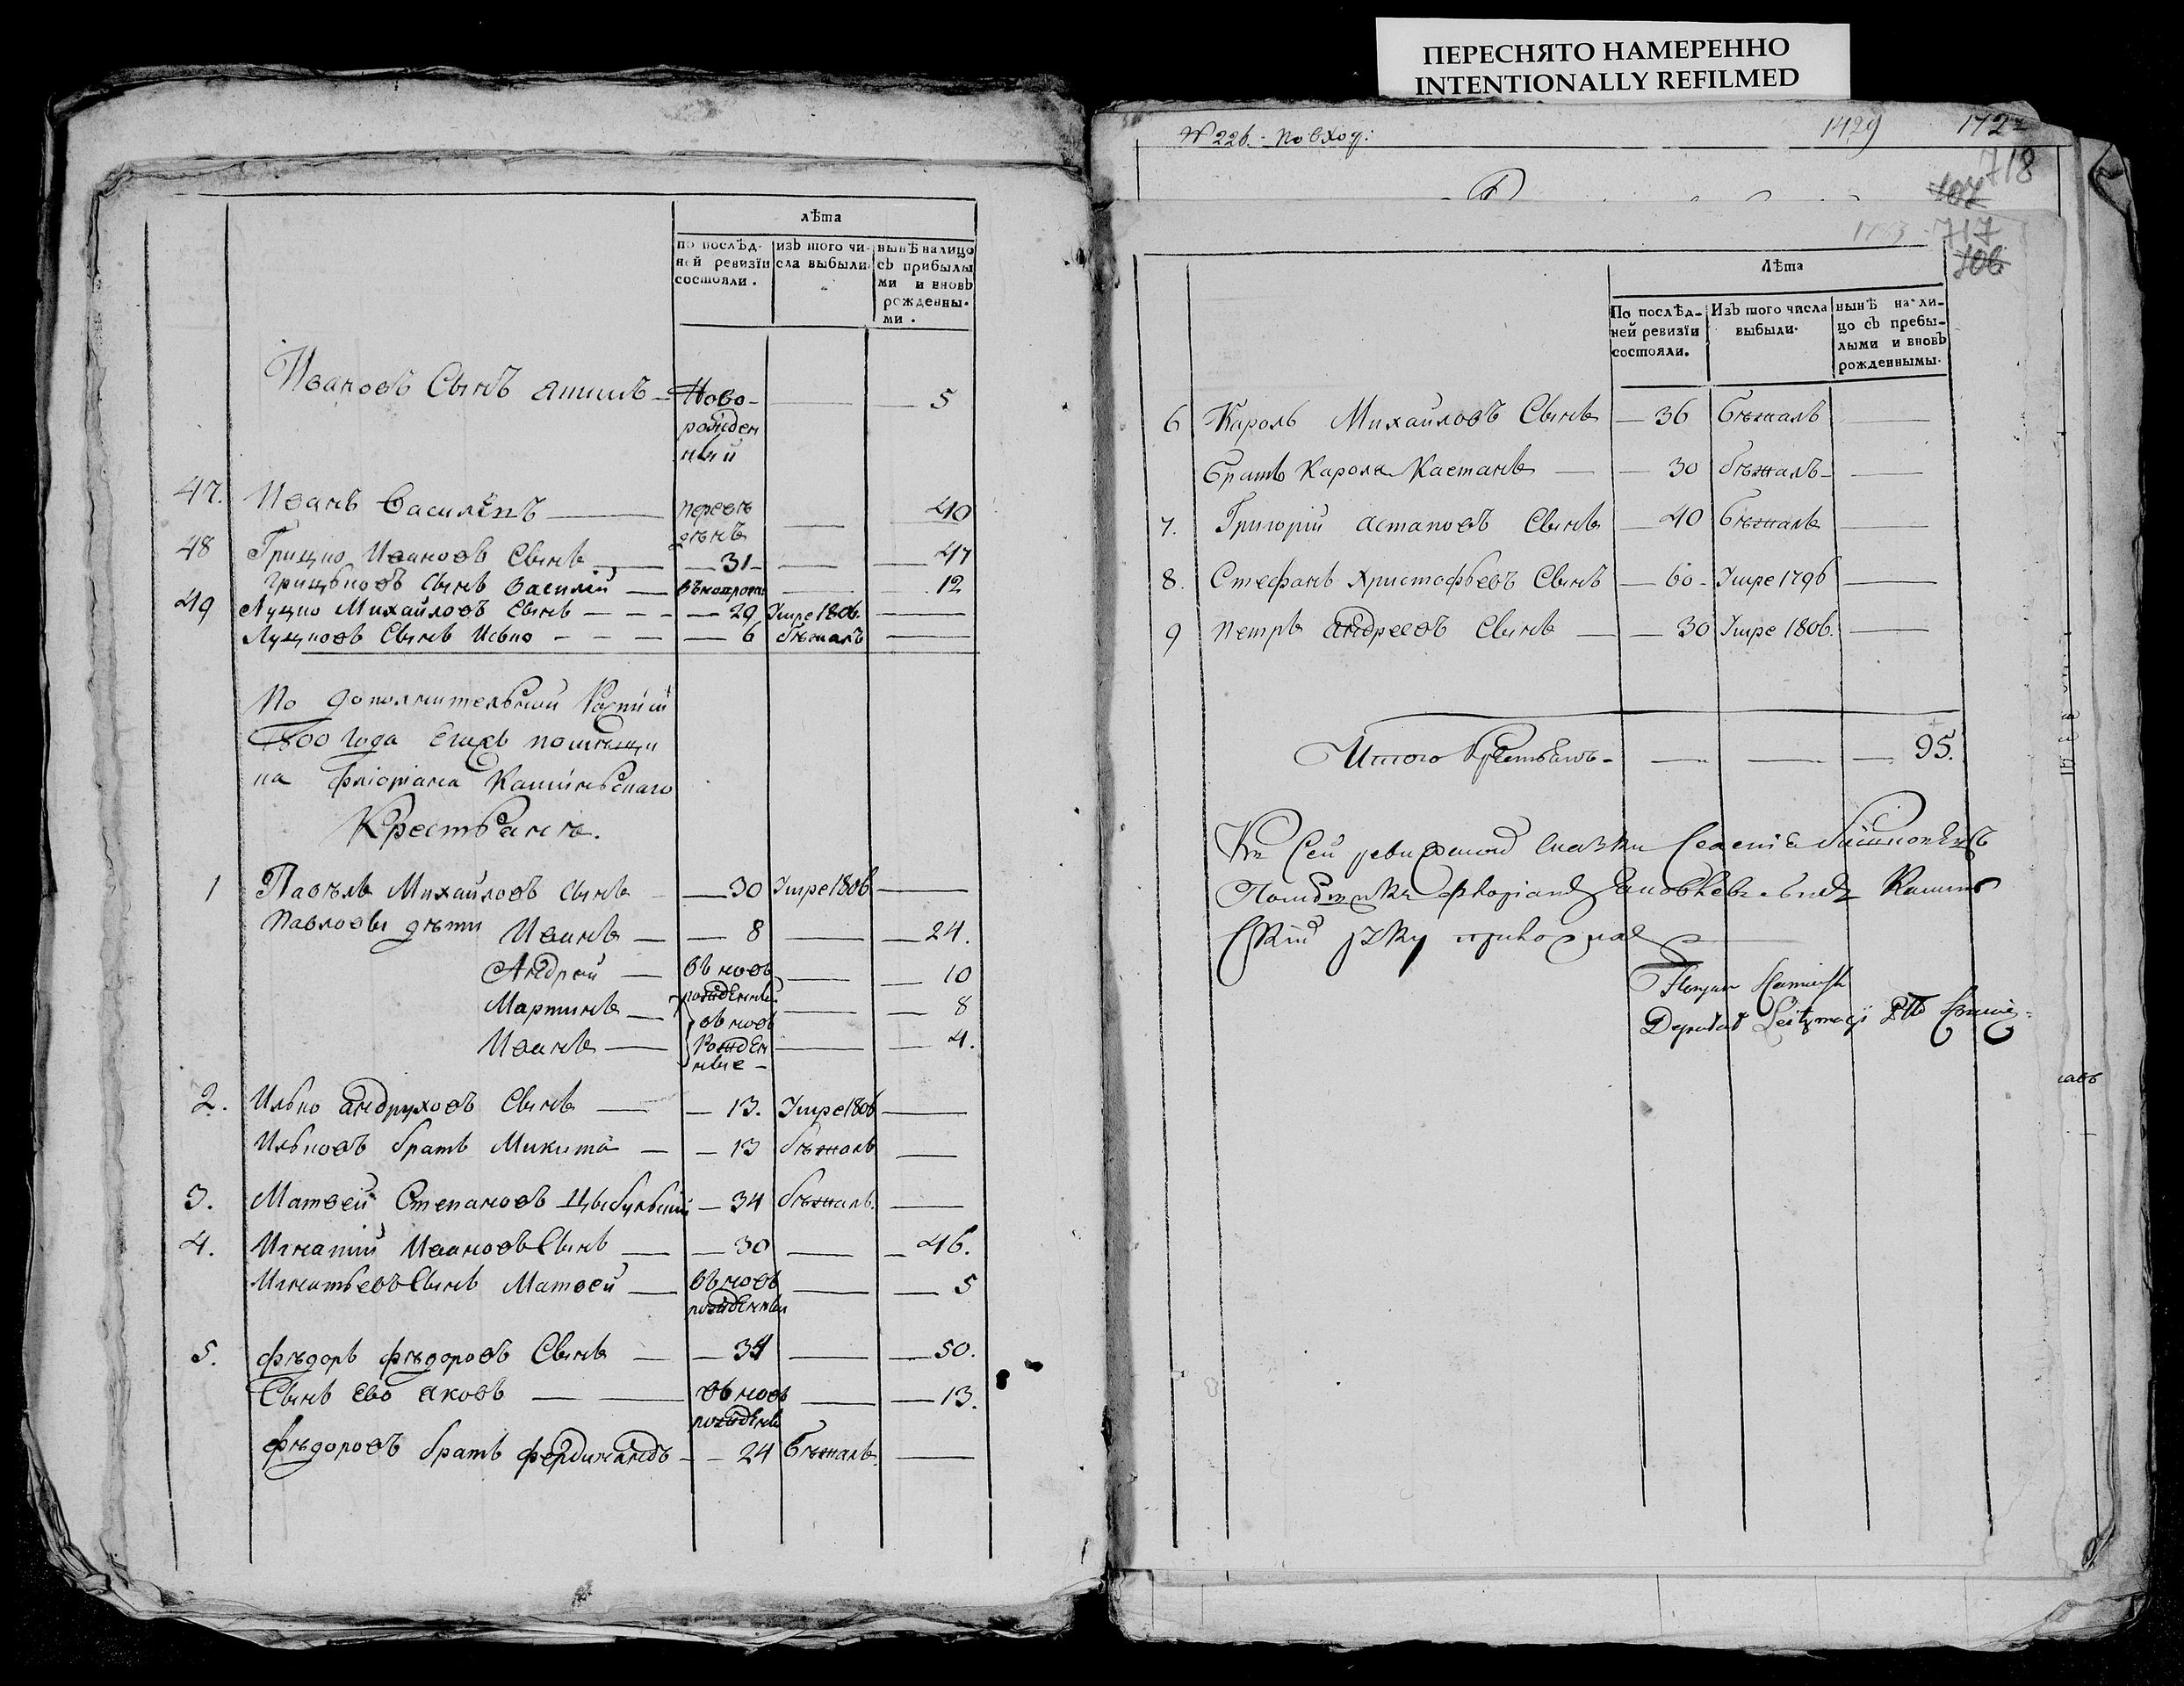 ПЕРЕСНЯТО НАМЕРЕННО
INTENTIONALLY REFILMED
лѣта
по послѣдней ревизїи состояли.
изЪ того числа выбыли.
нынѢ налицо сЪ прибылыми и вновЬ рожденными.
Ивановъ Сынъ — Новорожденный — 5
47. Иванъ — 40
48 Грицко Ивановъ Сынъ — 31 — 47
Грицьковъ Сынъ Василий — 12
49 Луцко Михайловъ Сынъ — 29 Умре 1806.
Луцковъ Сынъ Исько — 6 бѣжалъ
По дополнительной
1800 Года помѣщи
ка Флоріана Каминьскаго
Крестьянъ.
1 Павѣлъ Михайловъ Сынъ — 30 Умре 1806
Павловы дѣти Иванъ — 8 — 24.
Андрей — въновь рожденный — 10
Мартинъ — 8
въновь рожденные
Иванъ — 4.
2. Илько Андруховъ Сынъ — 13. Умре 1806
Ильковъ братъ Микита — 13 бѣжалъ
3. Матвей Степановъ — 34 бѣжалъ.
4. Игнатий Ивановъ Сынъ — 30 — 46.
Игнатьевъ Сынъ Матвей — въновь рожденный — 5
5. Фѣдоръ Фѣдоровъ Сынъ — 34 — 50.
Сынъ ево Яковъ — въновь рожденъ — 13.
Фѣдоровъ братъ Фердинандъ — 24 бѣжалъ
№ 226. По вход:
1429
172
718
107
717
106
Лѣта
По послѣдней ревизїи состояли.
ИзЪ того числа выбыли.
нынѢ налицо сЪ пребылыми и вновЬ рожденнымы.
6 Кароль Михайловъ Сынъ — 36 бѣжалъ
братъ Кароля Кастанъ — 30 бѣжалъ
7. Григорій Астаповъ Сынъ — 40 бѣжалъ
8. Стефанъ Христофьевъ Сынъ — 60 — Умре 1796
9 Петръ Андреевъ Сынъ — 30 Умре 1806.
Итого Крестьянъ — 95.
Къ Сей сказки
руку приложилъ
Deputat